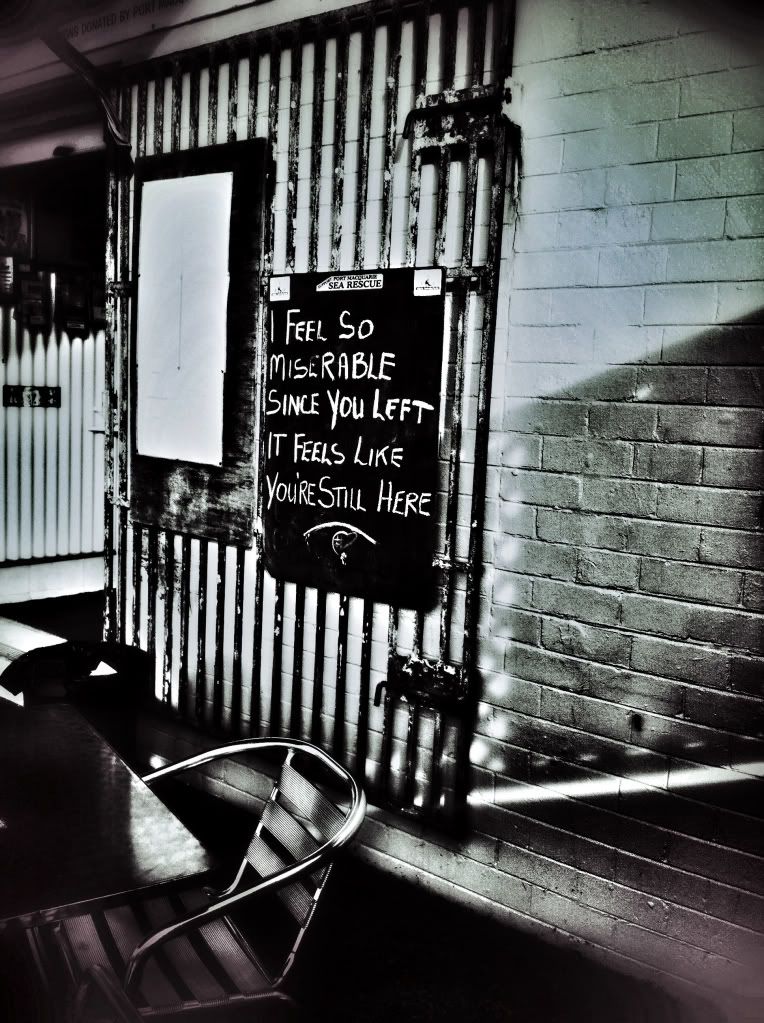 DONATED BY PORT
PORT MACQUARIE
SEA RESCUE
I FEEL SO
MISERABLE
SINCE YOU LEFT
IT FEELS LIKE
YOU'RE STILL HERE